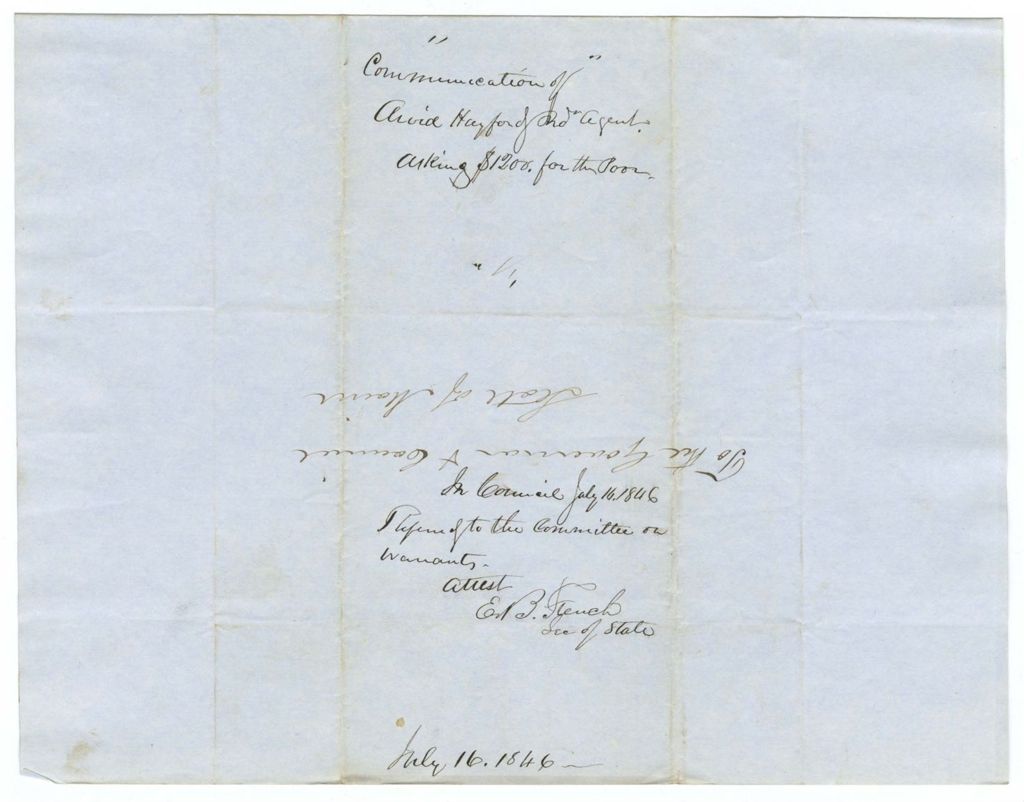 Communication of
Arvid Hayford Ind<sup>n</sup> Agent.
Asking $1200. for the Poor.
To the Governor & Council
State of Maine
In Council July 16. 1846
Referred to the Committee on
Warrants.
Attest
E. B. French
Sec of State
July 16. 1846